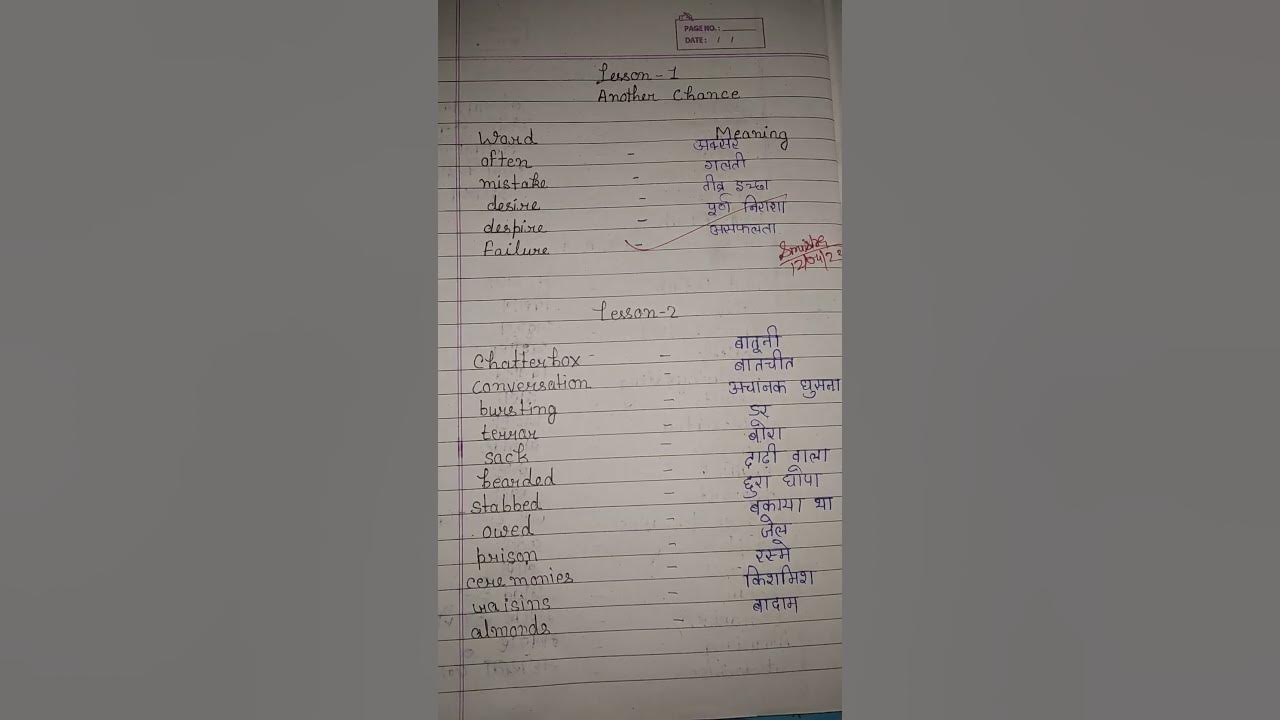 PAGE NO.:
DATE: / /
Lesson - 1
Another Chance
Word Meaning
often - अक्सर
mistake - गलती
desire - तीव्र इच्छा
despire - पूर्ण निराशा
failure - असफलता
12/04/2
Lesson-2
Chatterbox - बातूनी
conversation - बातचीत
bursting - अचानक घुसना
terrar - डर
sack - बोरा
bearded - दाढ़ी वाला
stabbed - छुरा घोपा
owed - बकाया था
prison - जेल
ceremonies - रस्मे
raisins - किशमिश
almonds - बादाम